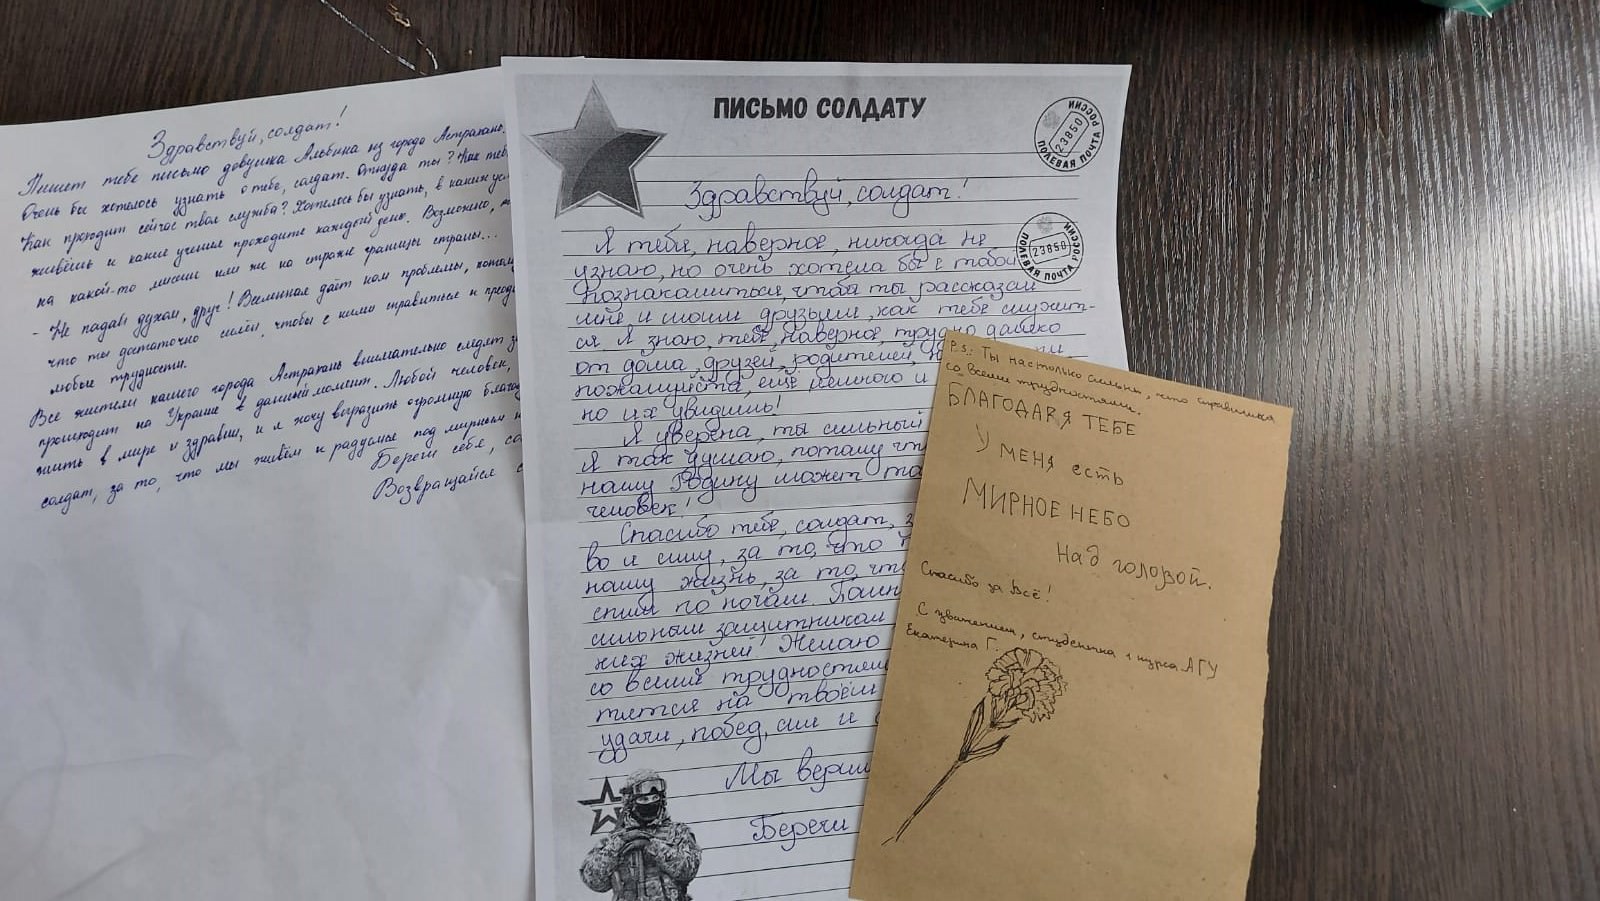 Здравствуй, солдат!
Пишет тебе письмо девушка Альбина из города Астрахань.
Очень бы хотелось узнать о тебе, солдат. Откуда ты? Как теб
Как проходит сейчас твоя служба? Хотелось бы узнать, в каких ус
живёшь и какие учения проходите каждый день. Возможно,
на какой-то миссии или же на страже границы страны...
- Не падай духом, друг! Вселенная даёт нам проблемы, потом
что ты достаточно силён, чтобы с ними справиться и преод
любые трудности.
Все жители нашего города Астрахань внимательно следят з
происходит на Украине в данный момент. Любой человек,
жить в мире и здравии, и я хочу выразить огромную благод
солдат, за то, что мы живём и радуемся под мирным н
Береги себя, со
Возвращайся с
ПИСЬМО СОЛДАТУ
ПОЛЕВАЯ ПОЧТА РОССИИ
23850
Здравствуй, солдат!
ПОЛЕВАЯ ПОЧТА РОССИИ
23850
Я тебя, наверное, никогда не
узнаю, но очень хотела бы с тобой
познакомиться, чтоб ты рассказал
мне и моим друзьям, как тебе служит-
ся. Я знаю, тебе, наверное, трудно далеко
от дома, друзей, родителей,
пожалуйста, ещё немного и
но их увидишь!
Я уверена, ты сильный
Я так думаю, потому чт
нашу Родину может та
человек!
Спасибо тебе, солдат, з
во и силу, за то, что
нашу жизнь, за то, чт
спим по ночам.
сильным защитникам
них жизней! Желаю
со всеми трудностями
тятся на твоём
удачи, побед, сил и
Мы вери
Береги
P.S.: Ты настолько сильный, что справишься
со всеми трудностями.
БЛАГОДАРЯ ТЕБЕ
У МЕНЯ есть
МИРНОЕ НЕБО
над головой.
Спасибо за всё!
С уважением, студентка 1 курса АГУ
Екатерина Г.